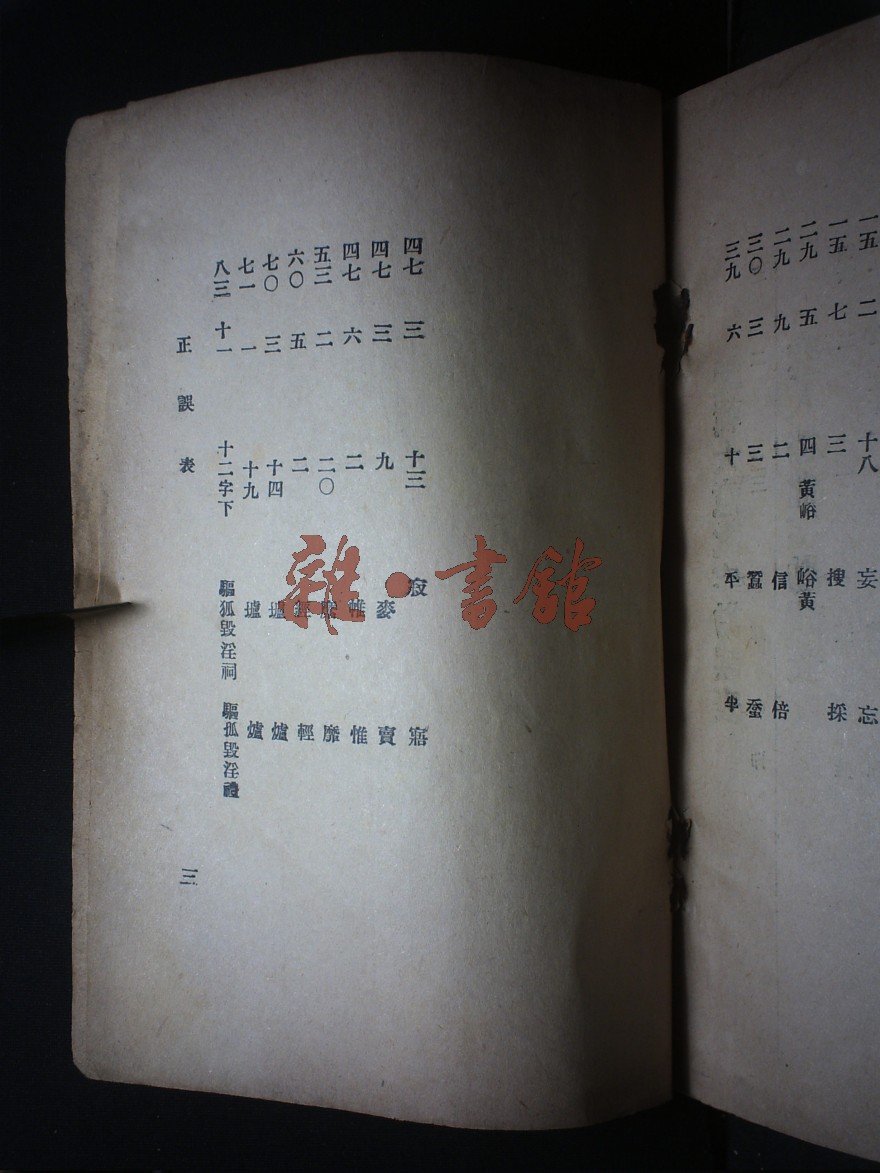 一五 二 十八 妄 忘
一五 七 三 搜 採
二九 五 四 黃峪 峪黃
二九 九 二 信 倍
三〇 三 三 蠶
三九 六 十
四七 三 十三 寂 寤
四七 三 九 麥 賣
四七 六 二 帷 惟
五三 二 二〇 靡
六〇 五 二 輕
七〇 三 十四 壚 爐
七一 一 十九 壚 爐
八三 十一 十二字下 驅狐毀淫祠 驅狐毀淫禮
正誤表
三
雜·書館